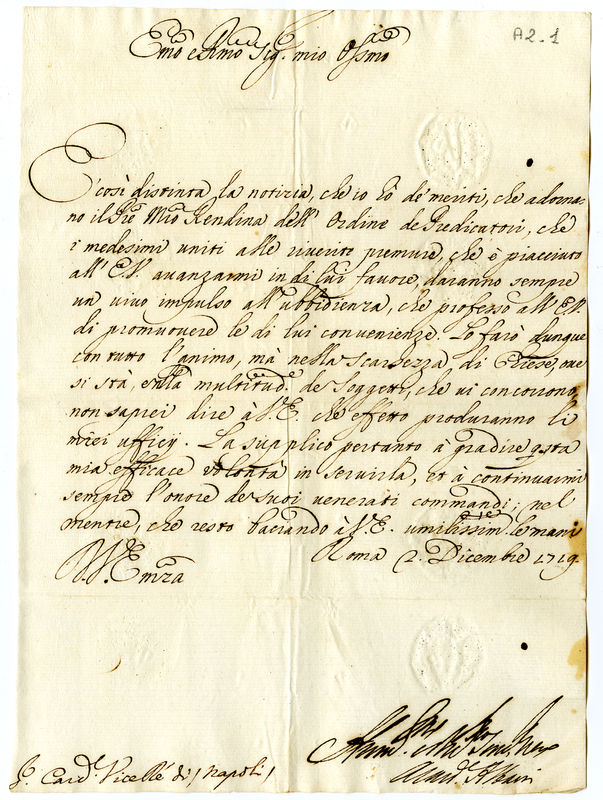 A2-1
Emo e Rmo Sig.r mio Ossmo
E' così distinta la notizia, che io hò de' meriti, che adorna-
no il Pre Mro Rendina dell' Ordine de Predicatori, che
i medesimi uniti alle riverite premure, che è piacciuto
all' E.V. avanzarmi in di lui favore, daranno sempre
un vivo impulso all' ubbidienza, che professo all' E.V.
di promuovere le di lui convenienze. Lo farò dunque
con tutto l'animo, mà nella scarsezza di Chiese, ove
si stà, e nella moltitud.e de Soggetti, che vi concorrono,
non saprei dire à V.E. che effetto produranno li
miei ufficij. La supplico pertanto à gradire qsta
mia efficace volontà in servirla, et à continuarmi
sempre l'onore de suoi venerati commandi; nel
mentre, che resto baciando à V.E. umilissim.te le mani
Roma 2. Dicembre 1719
V. Emza
Card. Albani
S.r Card.l Viceré di / Napoli /